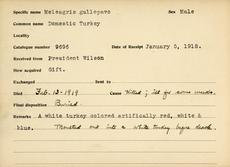 Specific name Meleagris gallopavo Sex Male
Common name Domestic Turkey
Locality
Catalogue number 9696 Date of Receipt January 5, 1918.
Received from President Wilson
How acquired Gift.
Exchanged Sent to
Died Feb. 13-1919 Cause Killed; ill for some weeks.
Final disposition Buried.
Remarks A white turkey colored artificially red, white &
blue. Moulted out into a white turkey before death.